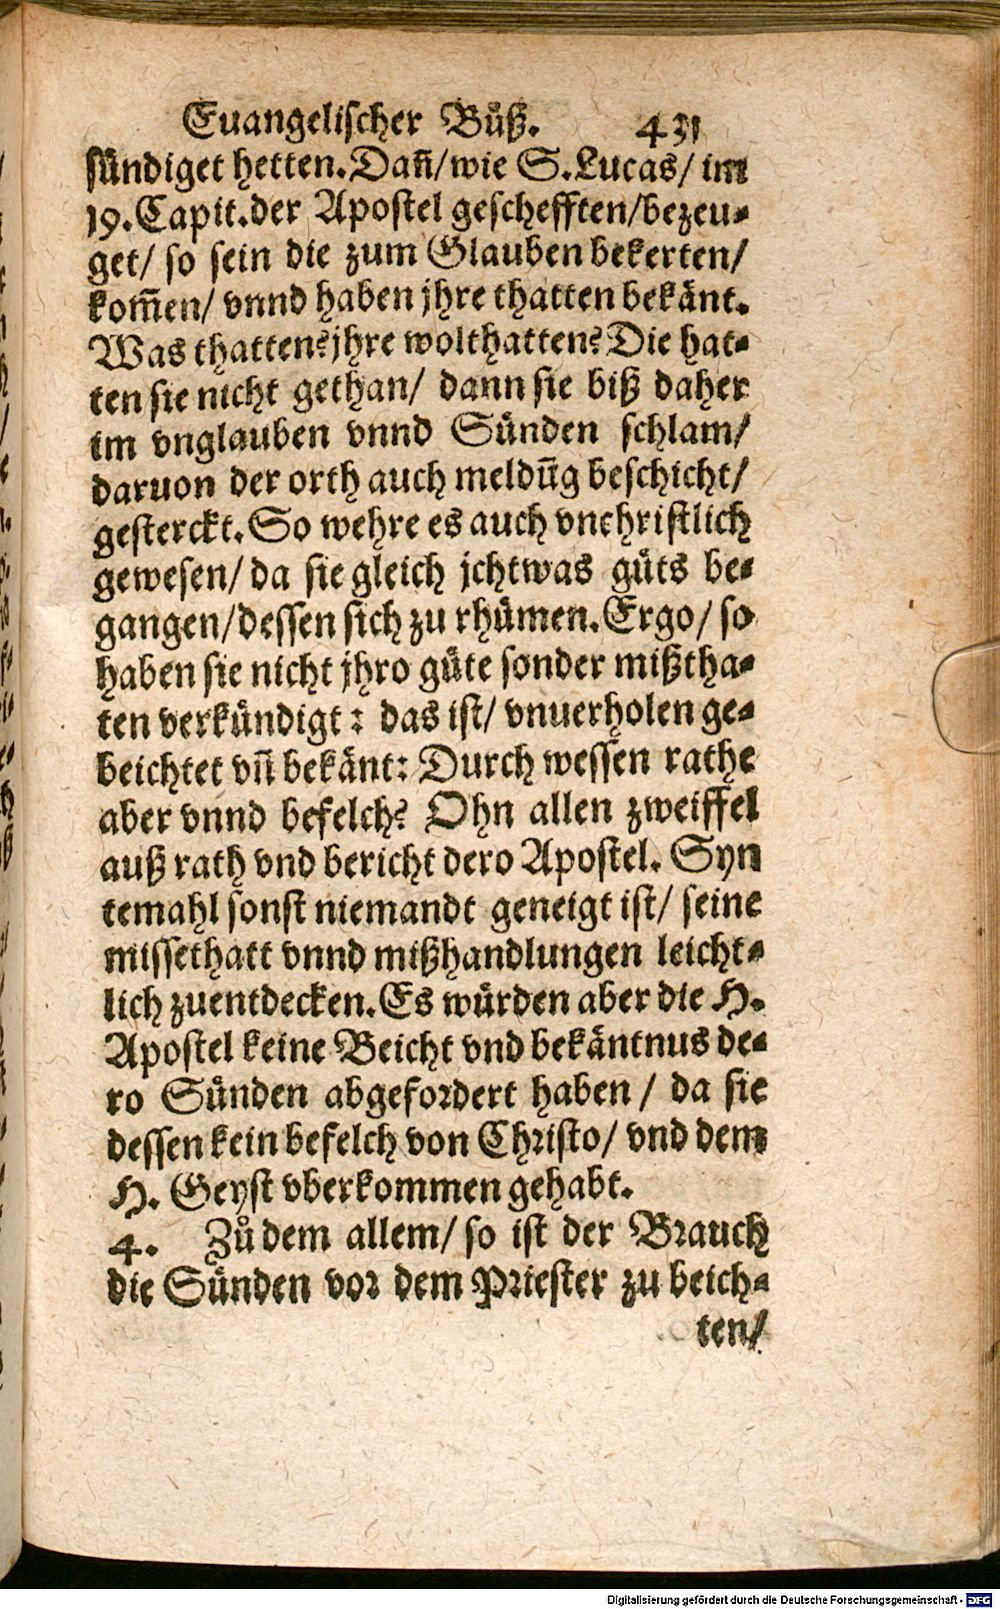 Euangelischer Bůß. 431
sündiget hetten. Dañ/ wie S. Lucas/ im
19. Capit. der Apostel geschefften/ bezeu-
get/ so sein die zum Glauben bekerten/
kom̃en/ vnnd haben jhre thatten bekänt.
Was thatten? jhre wolthatten? Die hat-
ten sie nicht gethan/ dann sie biß daher
im vnglauben vnnd Sünden schlam/
daruon der orth auch meldũg beschicht/
gesterckt. So wehre es auch vnchristlich
gewesen/ da sie gleich jchtwas güts be-
gangen/ dessen sich zu rhümen. Ergo/ so
haben sie nicht jhro güte sonder mißtha-
ten verkündigt: das ist/ vnuerholen ge-
beichtet vñ bekänt: Durch wessen rathe
aber vnnd befelch? Ohn allen zweiffel
auß rath vnd bericht dero Apostel. Syn
temahl sonst niemandt geneigt ist/ seine
missethatt vnnd mißhandlungen leicht-
lich zuentdecken. Es würden aber die H.
Apostel keine Beicht vnd bekäntnus de-
ro Sünden abgefordert haben/ da sie
dessen kein befelch von Christo/ vnd dem
H. Geyst vberkommen gehabt.
4. Zů dem allem/ so ist der Brauch
die Sünden vor dem Priester zu beich-
ten/
Digitalisierung gefördert durch die Deutsche Forschungsgemeinschaft - DFG